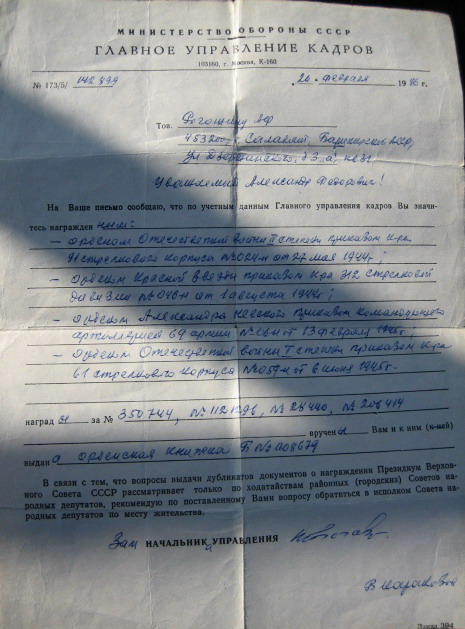 МИНИСТЕРСТВО ОБОРОНЫ СССР
ГЛАВНОЕ УПРАВЛЕНИЕ КАДРОВ
103160, г. Москва, К-160
№ 173/5/ 142899
„26“ февраля 1986 г.
Тов. Рогожину АФ
453200 г. Салават, Башкирской АССР,
ул Дзержинского, д 3 а, кв 31
Уважаемый Александр Федорович!
На Ваше письмо сообщаю, что по учетным данным Главного управления кадров Вы значи-
тесь награжденным:
– орденом Отечественной войны II степени приказом к-ра
91 стрелкового корпуса № 024/н от 27 мая 1944г;
– орденом Красной Звезды приказом к-ра 312 стрелковой
дивизии № 046/н от 1 августа 1944г;
– орденом Александра Невского приказом командующего
артиллерией 69 армии от 13 февраля 1945г;
– орденом Отечественной войны I степени приказом к-ра
61 стрелкового корпуса № 059/н от 8 июня 1945г.
наград за № 350744, № 1121296, № 28440, № 208414
вручены Вам и к ним (к ней)
выдана орденская книжка Б № 108679
В связи с тем, что вопросы выдачи дубликатов документов о награждении Президиум Верхов-
ного Совета СССР рассматривает только по ходатайствам районных (городских) Советов на-
родных депутатов, рекомендую по поставленному Вами вопросу обратиться в исполком Совета на-
родных депутатов по месту жительства.
Зам НАЧАЛЬНИК УПРАВЛЕНИЯ
Заказ 394